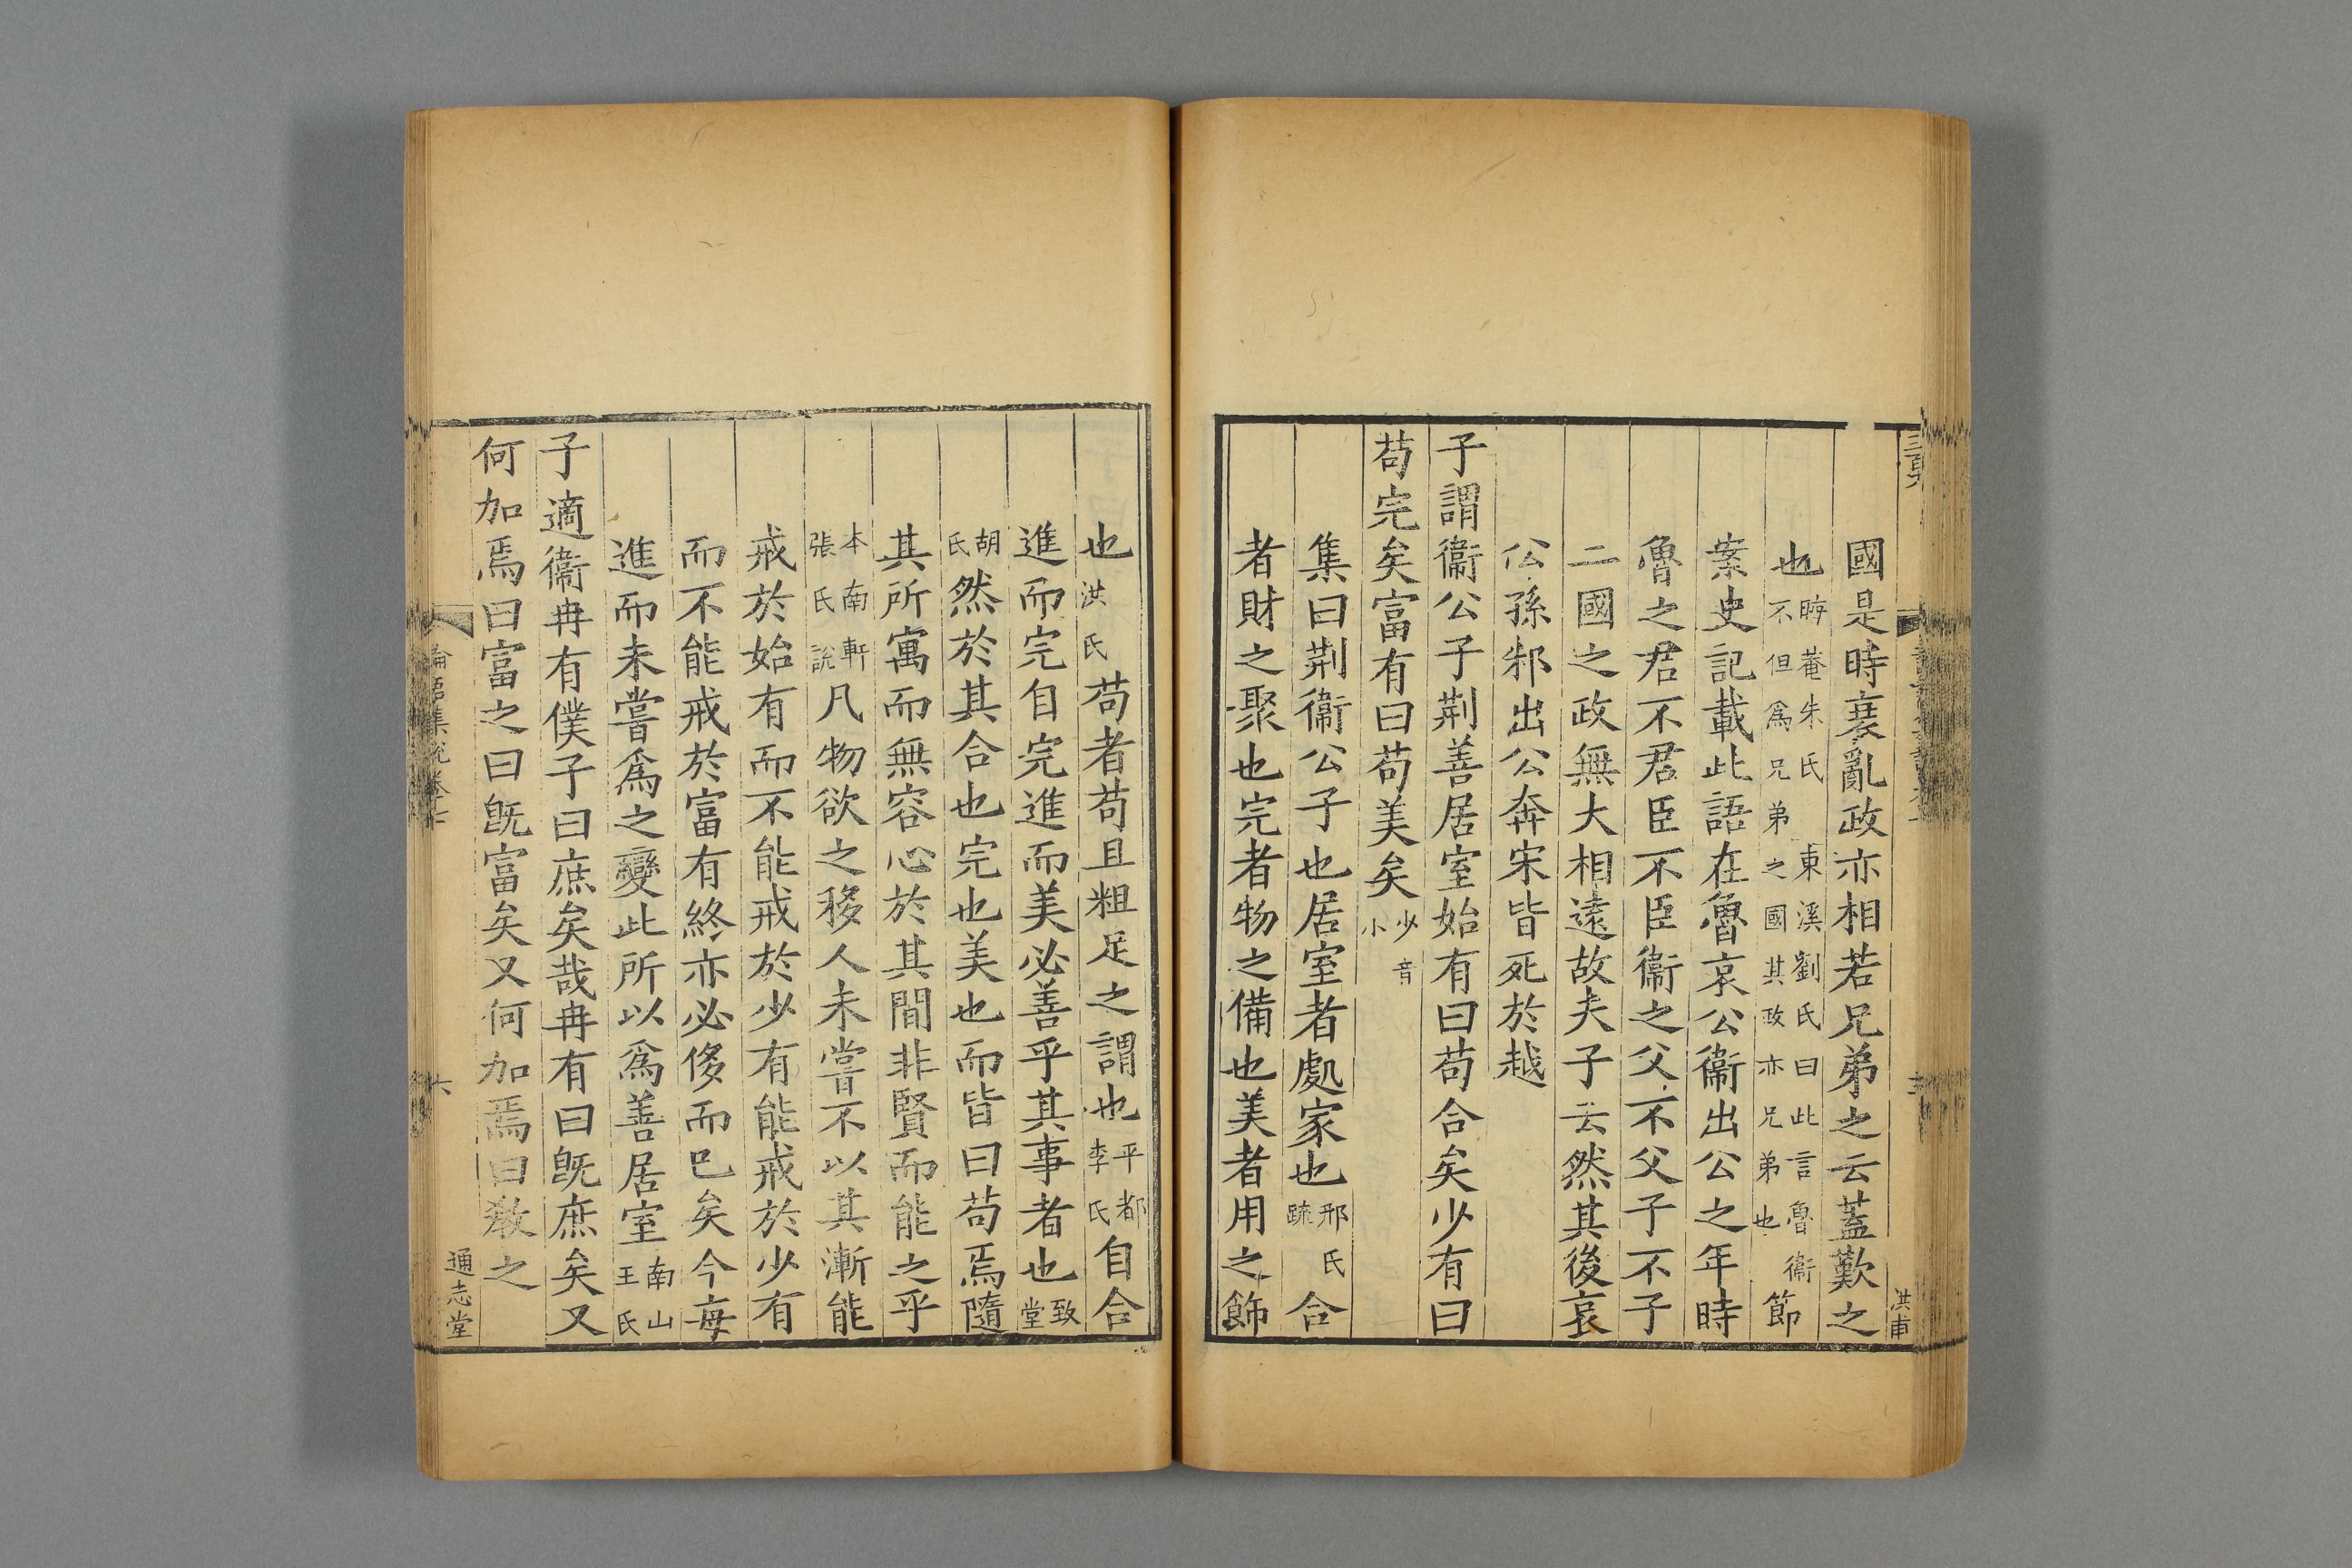 國是時衰亂政亦相若兄弟之云蓋歎之
也晦菴朱氏　東溪劉氏曰此言魯衞不但爲兄弟之國其政亦兄弟也節
案史記載此語在魯哀公衞出公之年時
魯之君不君臣不臣衞之父不父子不子
二國之政無大相遠故夫子云然其後哀
公孫邾出公奔宋皆死於越
子謂衞公子荆善居室始有曰苟合矣少有曰
苟完矣富有曰苟美矣少音小
集曰荆衞公子也居室者處家也邢氏疏合
者財之聚也完者物之備也美者用之飾
洪甫
也洪氏苟者苟且粗足之謂也平都李氏自合
進而完自完進而美必善乎其事者也致堂
胡氏然於其合也完也美也而皆曰苟焉隨
其所寓而無容心於其間非賢而能之乎
本南軒張氏說凡物欲之移人未嘗不以其漸能
戒於始有而不能戒於少有能戒於少有
而不能戒於富有終亦必侈而已矣今毎
進而未嘗爲之變此所以爲善居室南山王氏
子適衞冉有僕子曰庶矣哉冉有曰旣庶矣又
何加焉曰富之曰旣富矣又何加焉曰敎之
論語集說卷七
六
通志堂